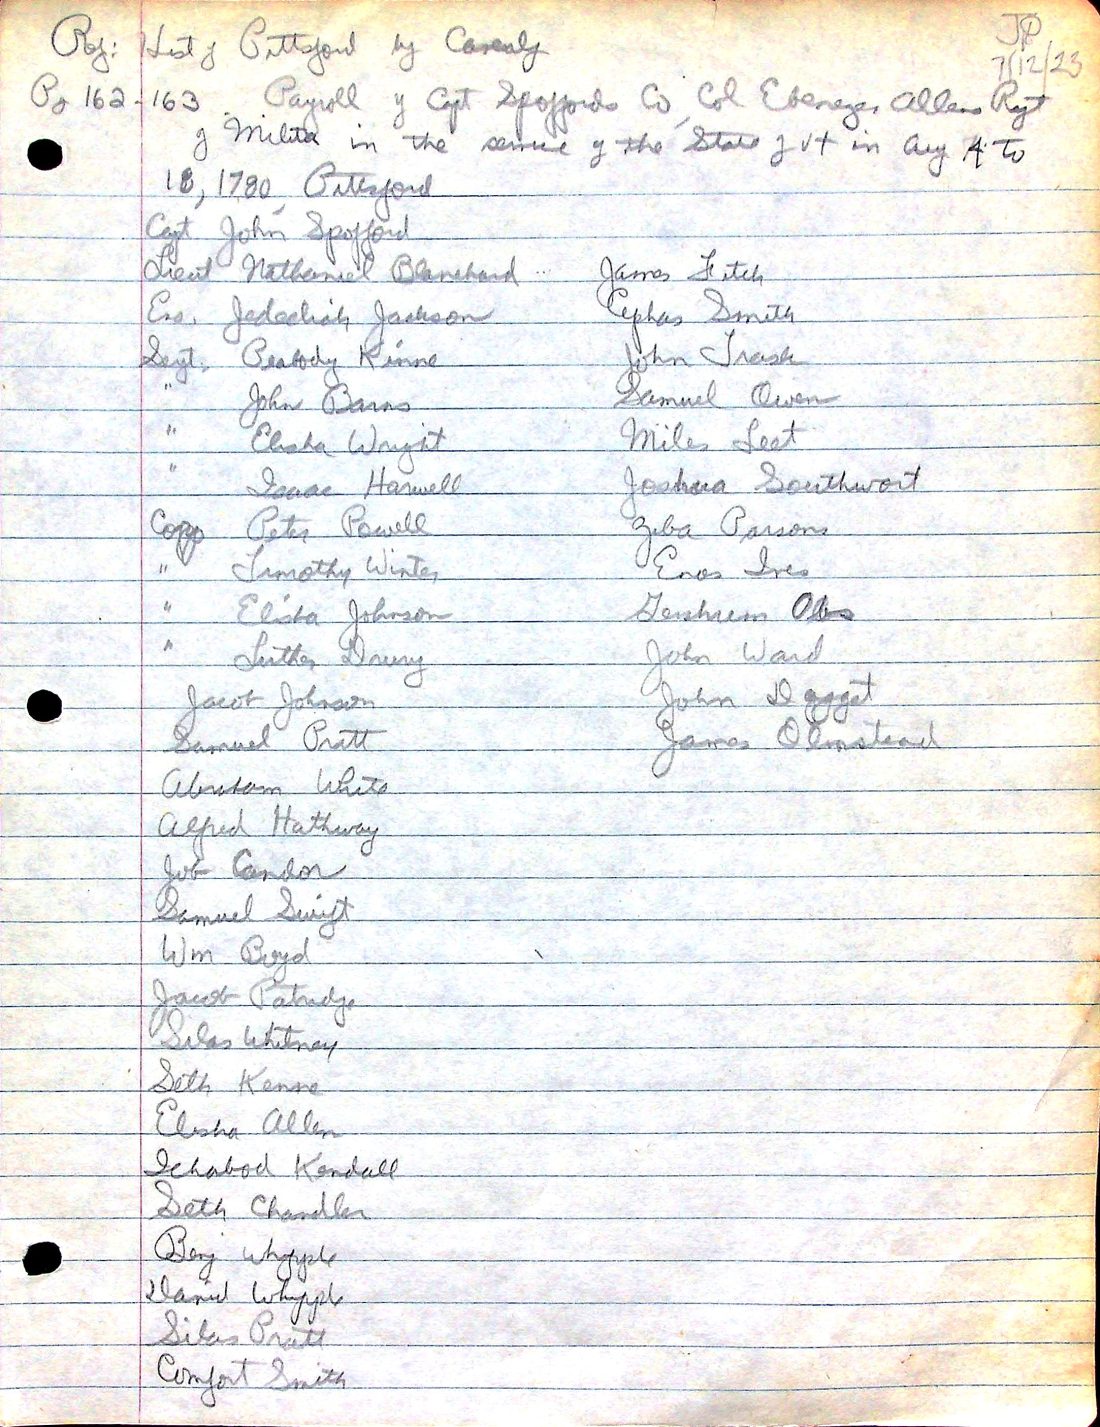 Ref: Hist of Pittsford by Caverly
JP
7/12/23
Pg 162-163. Payroll of Capt Spoffords Co, Col Ebenezer Allens Regt
of Militia in the service of the State of Vt in Aug 4 to
18, 1780, Pittsford
Capt John Spofford
Lieut Nathaniel Blanchard
Ens. Jedediah Jackson
Segt. Peabody Kinne
" John Barns
" Elisha Wright
" Isaac Harwell
Corp Peter Powell
" Timothy Winter
" Elisha Johnson
" Luther Drury
Jacob Johnson
Samuel Pratt
Abraham White
Alfred Hathway
Job Candon
Samuel Swift
Wm Boyd
Jacob Patridge
Silas Whitney
Seth Kenne
Elisha Allen
Ichabod Kendall
Seth Chandler
Benj Whipple
Daniel Whipple
Silas Pratt
Comfort Smith
James Fitch
Cephas Smith
John Trask
Samuel Owen
Miles Leet
Joshua Southwort
Ziba Parsons
Enos Ives
John Ward
John Dogget
James Olmstead